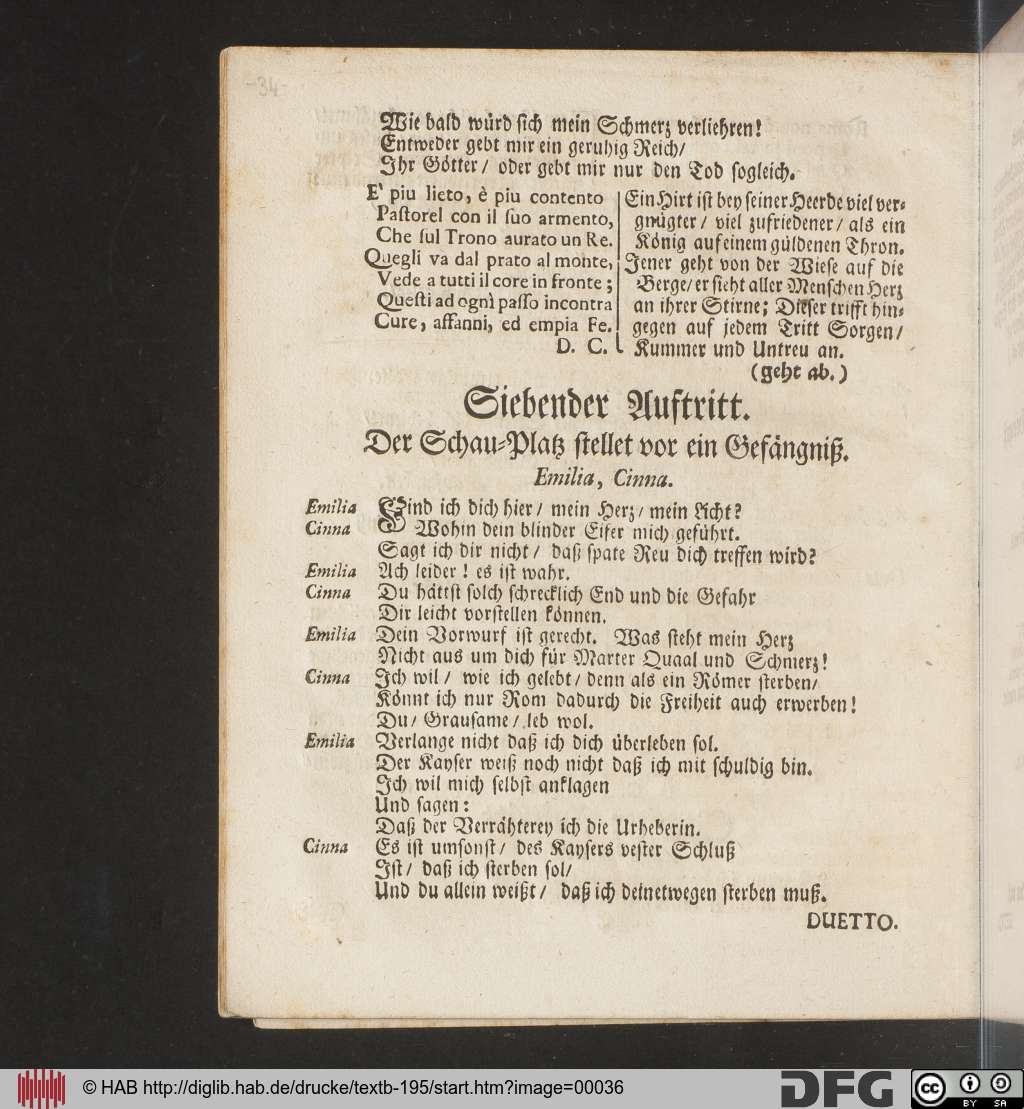 -34-
Wie bald würd sich mein Schmerz verliehren!
Entweder gebt mir ein geruhig Reich/
Ihr Götter/ oder gebt mir nur den Tod sogleich.
E' piu lieto, è piu contento
Pastorel con il suo armento,
Che sul Trono aurato un Re.
Quegli va dal prato al monte,
Vede a tutti il core in fronte;
Questi ad ogni passo incontra
Cure, affanni, ed empia Fe.
D. C.
Ein Hirt ist bey seiner Heerde viel ver-
gnügter/ viel zufriedener/ als ein
König auf einem güldenen Thron.
Jener geht von der Wiese auf die
Berge/ er sieht aller Menschen Herz
an ihrer Stirne; Dieser trifft hin-
gegen auf jedem Tritt Sorgen/
Kummer und Untreu an.
(geht ab.)
Siebender Auftritt.
Der Schau-Platz stellet vor ein Gefängniß.
Emilia, Cinna.
Emilia Find ich dich hier/ mein Herz/ mein Licht?
Cinna Wohin dein blinder Eifer mich geführt.
Sagt ich dir nicht/ daß spate Reu dich treffen wird?
Emilia Ach leider! es ist wahr.
Cinna Du hättst solch schrecklich End und die Gefahr
Dir leicht vorstellen können.
Emilia Dein Vorwurf ist gerecht. Was steht mein Herz
Nicht aus um dich für Marter Quaal und Schmerz!
Cinna Ich wil/ wie ich gelebt/ denn als ein Römer sterben/
Könnt ich nur Rom dadurch die Freiheit auch erwerben!
Du/ Grausame/ leb wol.
Emilia Verlange nicht daß ich dich überleben sol.
Der Kayser weiß noch nicht daß ich mit schuldig bin.
Ich wil mich selbst anklagen
Und sagen:
Daß der Verrähterey ich die Urheberin.
Cinna Es ist umsonst/ des Kaysers vester Schluß
Ist/ daß ich sterben sol/
Und du allein weißt/ daß ich deinetwegen sterben muß.
DUETTO.
© HAB http://diglib.hab.de/drucke/textb-195/start.htm?image=00036
DFG
cc BY SA